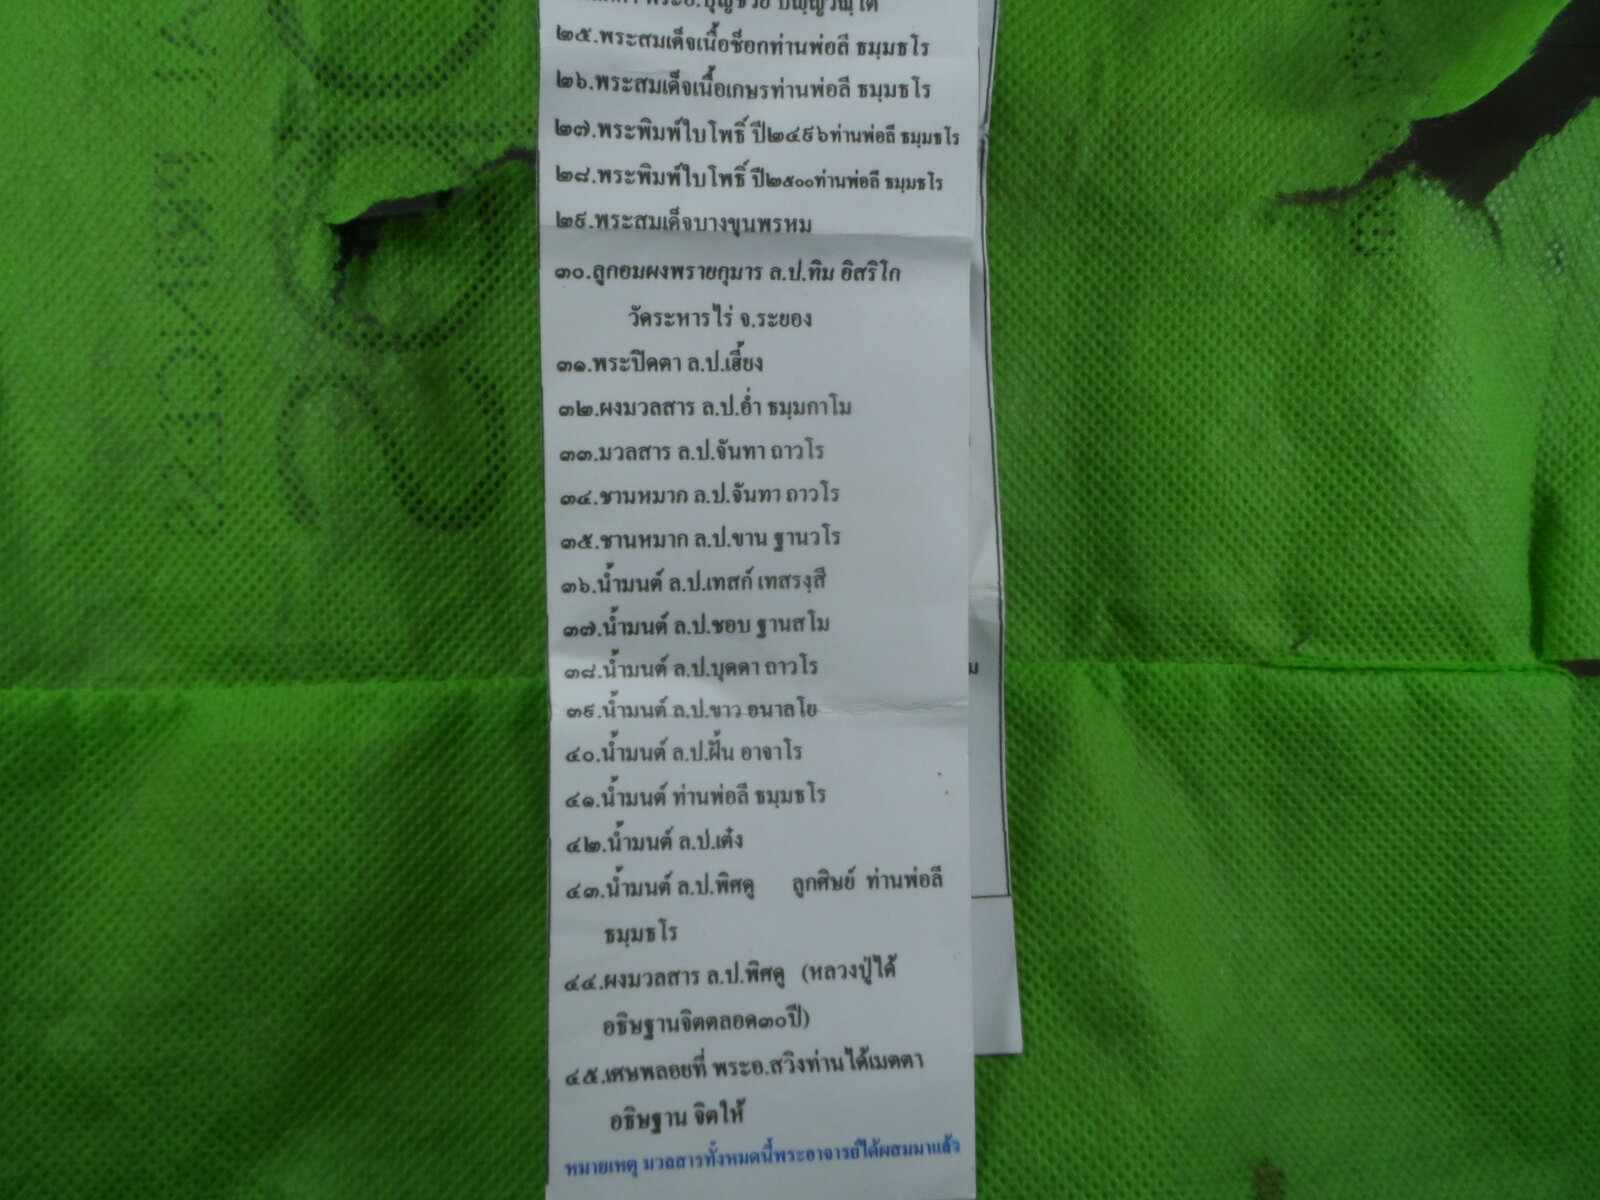 พระอ.บุญช่วย ปัญญวนฺโต
๒๕.พระสมเด็จเนื้อช็อกท่านพ่อลี ธมฺมธโร
๒๖.พระสมเด็จเนื้อเกษรท่านพ่อลี ธมฺมธโร
๒๗.พระพิมพ์ใบโพธิ์ ปี๒๔๙๖ท่านพ่อลี ธมฺมธโร
๒๘.พระพิมพ์ใบโพธิ์ ปี๒๕๐๐ท่านพ่อลี ธมฺมธโร
๒๙.พระสมเด็จบางขุนพรหม
๓๐.ลูกอมผงพรายกุมาร ล.ป.ทิม อิสริโก
วัดระหารไร่ จ.ระยอง
๓๑.พระปิดตา ล.ป.เฮี้ยง
๓๒.ผงมวลสาร ล.ป.อ่ำ ธมฺมกาโม
๓๓.มวลสาร ล.ป.จันทา ถาวโร
๓๔.ชานหมาก ล.ป.จันทา ถาวโร
๓๕.ชานหมาก ล.ป.ขาน ฐานวโร
๓๖.น้ำมนต์ ล.ป.เทสก์ เทสรงฺสี
๓๗.น้ำมนต์ ล.ป.ชอบ ฐานสโม
๓๘.น้ำมนต์ ล.ป.บุดดา ถาวโร
๓๙.น้ำมนต์ ล.ป.ขาว อนาลโย
๔๐.น้ำมนต์ ล.ป.ฝั้น อาจาโร
๔๑.น้ำมนต์ ท่านพ่อลี ธมฺมธโร
๔๒.น้ำมนต์ ล.ป.เต๋ง
๔๓.น้ำมนต์ ล.ป.พิศดู ลูกศิษย์ ท่านพ่อลี
ธมฺมธโร
๔๔.ผงมวลสาร ล.ป.พิศดู (หลวงปู่ได้
อธิษฐานจิตตลอด๓๐ปี)
๔๕.เศษพลอยที่ พระอ.สวิงท่านได้เมตตา
อธิษฐาน จิตให้
หมายเหตุ มวลสารทั้งหมดนี้พระอาจารย์ได้ผสมมาแล้ว